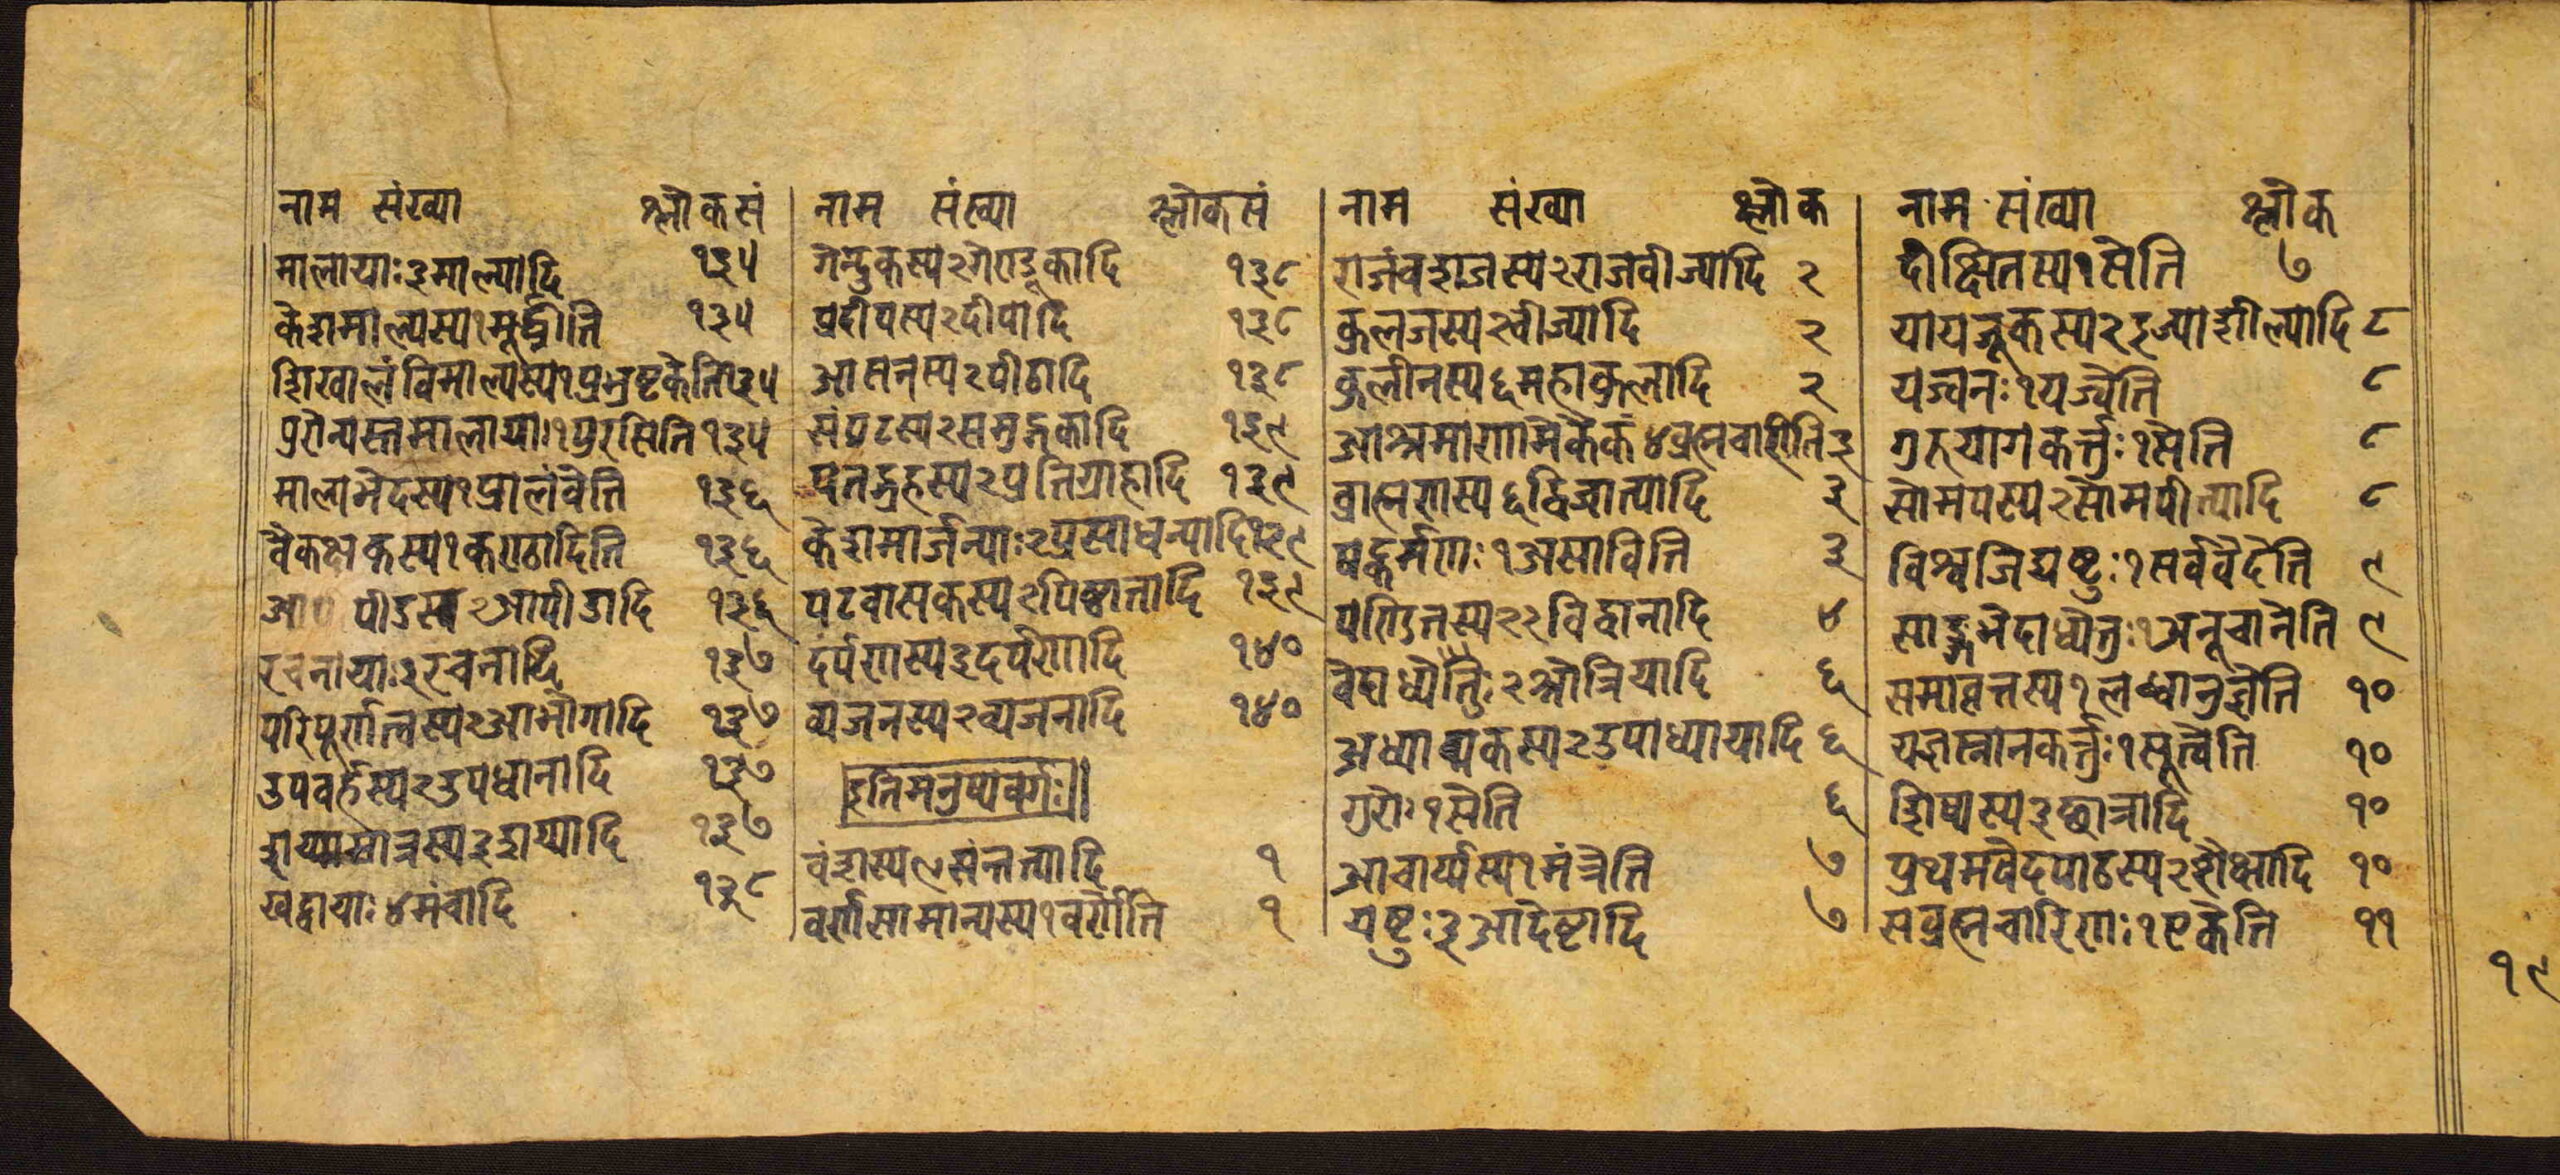 नाम संख्या श्लोकसं
मालायाः३माल्यादि १३५
केशमाल्यस्य१मूर्द्ध्नीति १३५
शिखालंविमाल्यस्य१प्रभ्रष्टकेति१३५
पुरोन्यस्तमालायाः१पुरसिति १३५
मालाभेदस्य१प्रालंवेति १३६
वैकक्षकस्य१कण्ठादिति १३६
आपीडस्य२आपीडादि १३६
रचनायाः२रचनादि १३७
परिपूर्णत्वस्य२आभोगादि १३७
उपवर्हस्य२उपधानादि १३७
शय्यामात्रस्य३शय्यादि १३७
खट्वायाः४मंचादि १३८
नाम संख्या श्लोकसं
गेन्दुकस्य२गेण्डूकादि १३८
प्रदीपस्य२दीपादि १३८
आसनस्य२पीठादि १३८
संपुटस्य२समुद्गकादि १३९
पतद्ग्रहस्य२प्रतिग्राहादि १३९
केशमार्जन्याः२प्रसाधन्यादि१३९
पटवासकस्य२पिष्ठातादि १३९
दर्पणस्य३दर्पणादि १४०
व्यजनस्य२व्यजनादि १४०
इतिमनुष्यवर्गः॥
वंशस्य९संन्तत्यादि १
वर्णसामान्यस्य१वर्णेति १
नाम संख्या श्लोक
राजंवशजस्य२राजवीज्यादि २
कुलजस्य२वीज्यादि २
कुलीनस्य६महाकुलादि २
आश्रमाणामेकैकं४व्रह्मचारीति३
व्राह्मणस्य६द्विजात्यादि ३
षट्कर्मणः१असाविति ३
पण्डितस्य२२विद्वानादि ४
वेदाध्येतुः२श्रोत्रियादि ६
अध्यापकस्य२उपाध्यायादि ६
गुरोः१सेति ६
आचार्य्यस्य१मंत्रेति ७
यष्टुः३आदेष्टादि ७
नाम संख्या श्लोक
दीक्षितस्य१सेति ७
यायजूकस्य२इज्याशील्यादि ८
यज्वनः१यज्वेति ८
गुरुयागकर्त्तुः१सेति ८
सोमपस्य२सोमपीत्यादि ८
विश्वजिद्यष्टुः१सर्ववेदेति ९
साङ्गभेदाध्येतुः१अनूचानेति ९
समावृत्तस्य१लब्धानुज्ञेति १०
यज्ञस्नानकर्त्तुः१सूत्वेति १०
शिष्यस्य३छात्रादि १०
प्रथमवेदपाठस्य२शैक्षादि १०
सव्रह्मचारिणः१एकेति ११
१९